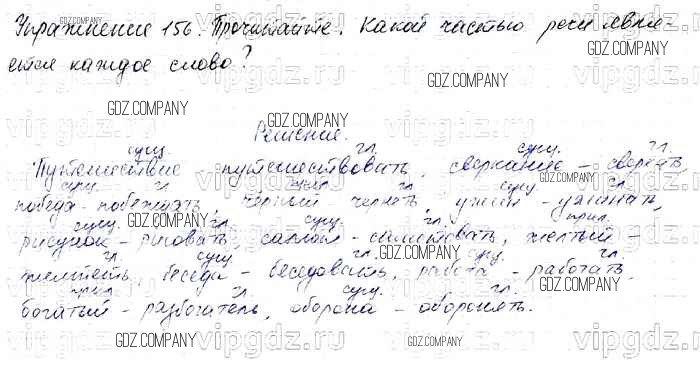 Упражнение 156. Прочитайте. Какой частью речи явля-
ется каждое слово?
GDZ.COMPANY GDZ.COMPANY GDZ.COMPANY
Решение.
сущ. гл. сущ. гл.
Путешествие путешествовать, сверкание – сверкать,
сущ. гл. гл. сущ. гл.
победа – побеждать, черный чернеть ужин – ужинать,
сущ. гл. сущ. гл. прил.
рисунок – рисовать, салют – салютовать, желтый –
гл. сущ. гл. сущ. гл.
желтеть, беседа – беседовать, работа – работать,
прил. гл. сущ. гл.
богатый – разбогатель, оборона – оборонять.
GDZ.COMPANY GDZ.COMPANY GDZ.COMPANY